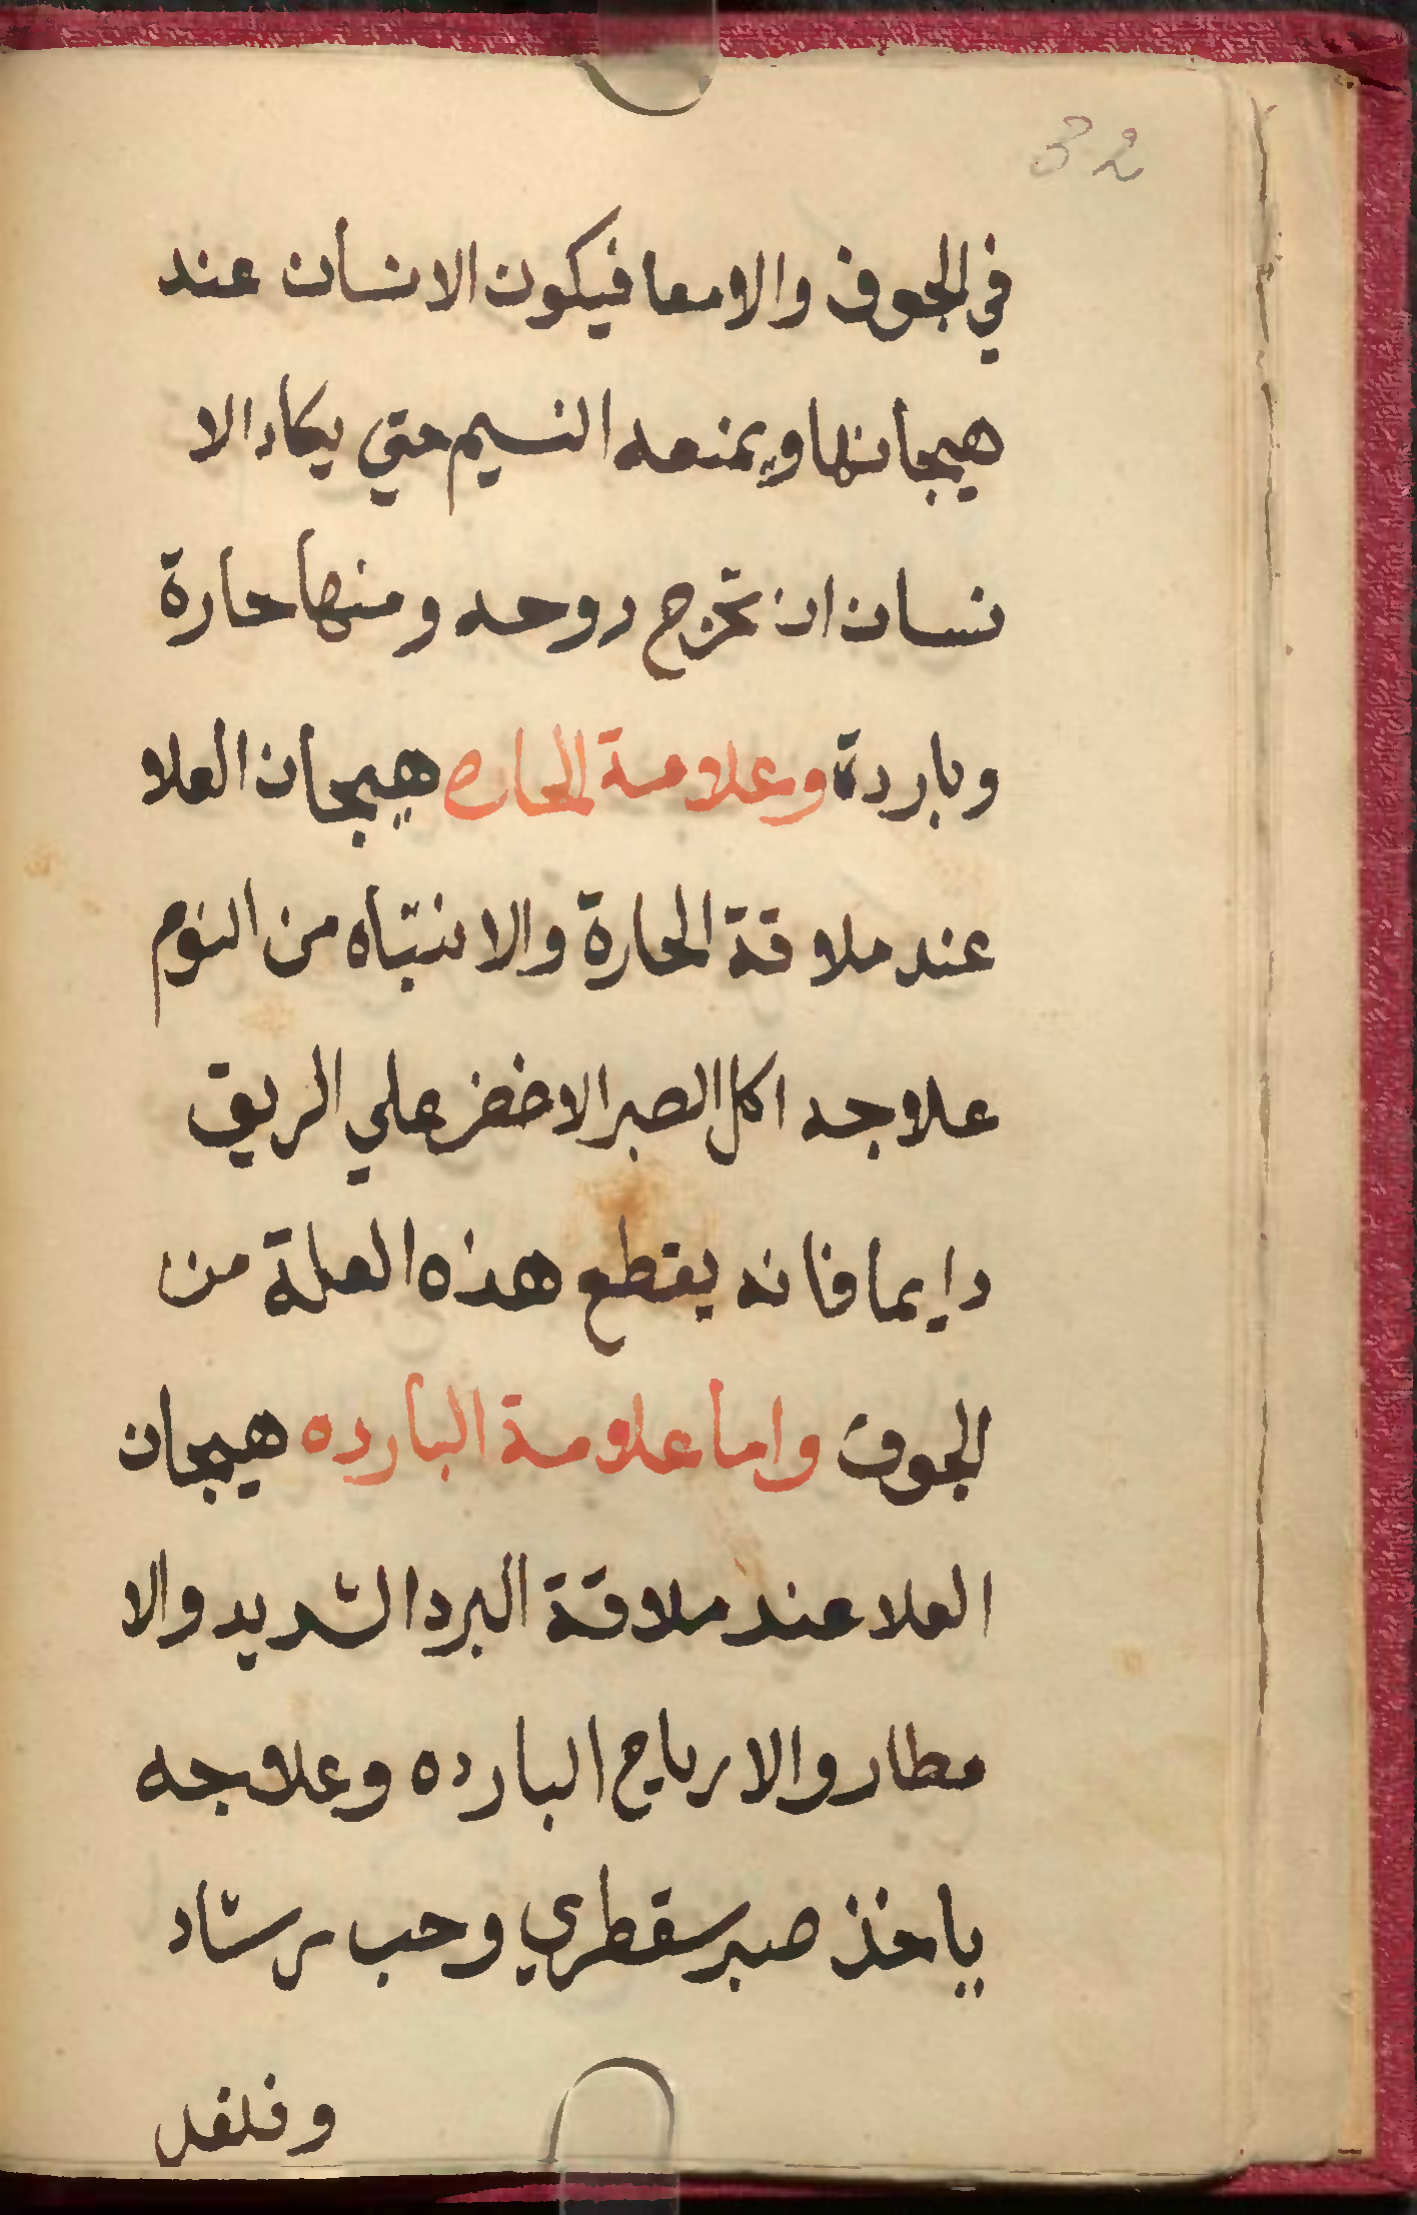 32
في الجوف والامعا فيكون الانسان عند
هيجانها ويمنعه النسيم حتي يكاد الا
نسان ان تخرج روحه ومنها حارة
وباردة وعلامة الحاره هيجان العلا
عند ملاقة الحارة والانتباه من النوم
علاجه اكل الصبر الاخضر علي الريق
دايما فانه يقطع هذه العلة من
الجوف واما علامة البارده هيجان
العلا عند ملاقة البرد الشديد والا
مطار والارياح البارده وعلاجه
ياخذ صبر سقطري وحب رشاد
وفلفل